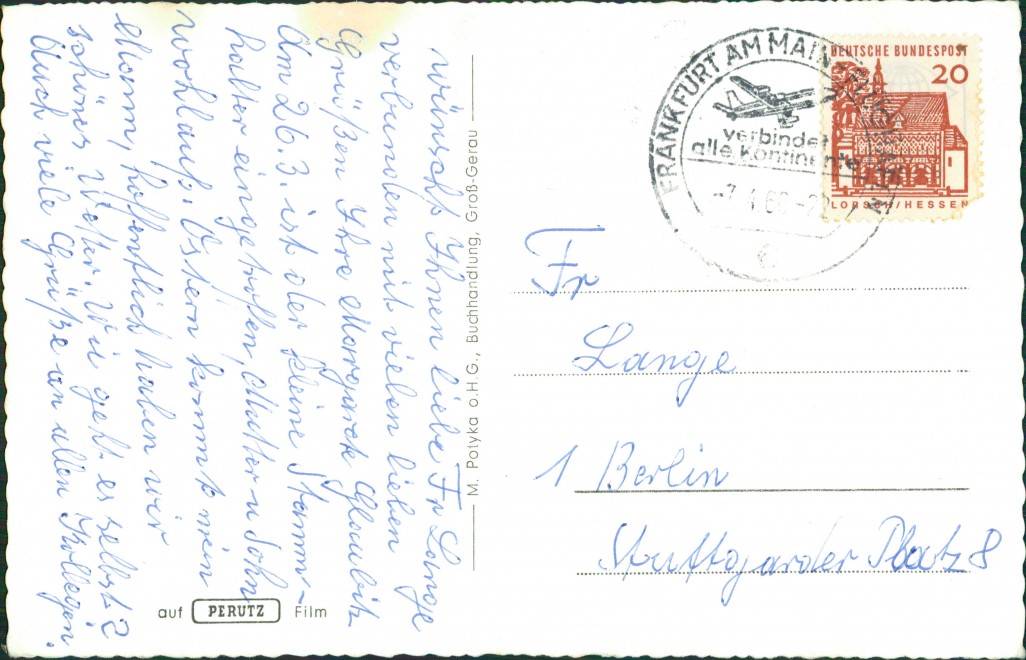 wünscht Ihnen liebe Fr Lange
verbunden mit vielen lieben
Grüßen Ihre Margarete Glaubitz
Am 26.3. ist der kleine Stamm-
halter eingetroffen, Mutter u Sohn
wohlauf. Ostern kommt mein
Mann, hoffentlich haben wir
schönes Wetter. Wie geht es selbst?
Auch viele Grüße an allen Kollegen.
M. Potyka o.H.G., Buchhandlung, Groß-Gerau
auf PERUTZ Film
FRANKFURT AM MAIN
verbindet
alle Kontinente
-7.4.66-
DEUTSCHE BUNDESPOST
20
LORSCH/HESSEN
Fr
Lange
1 Berlin
Stuttgarder Platz 8